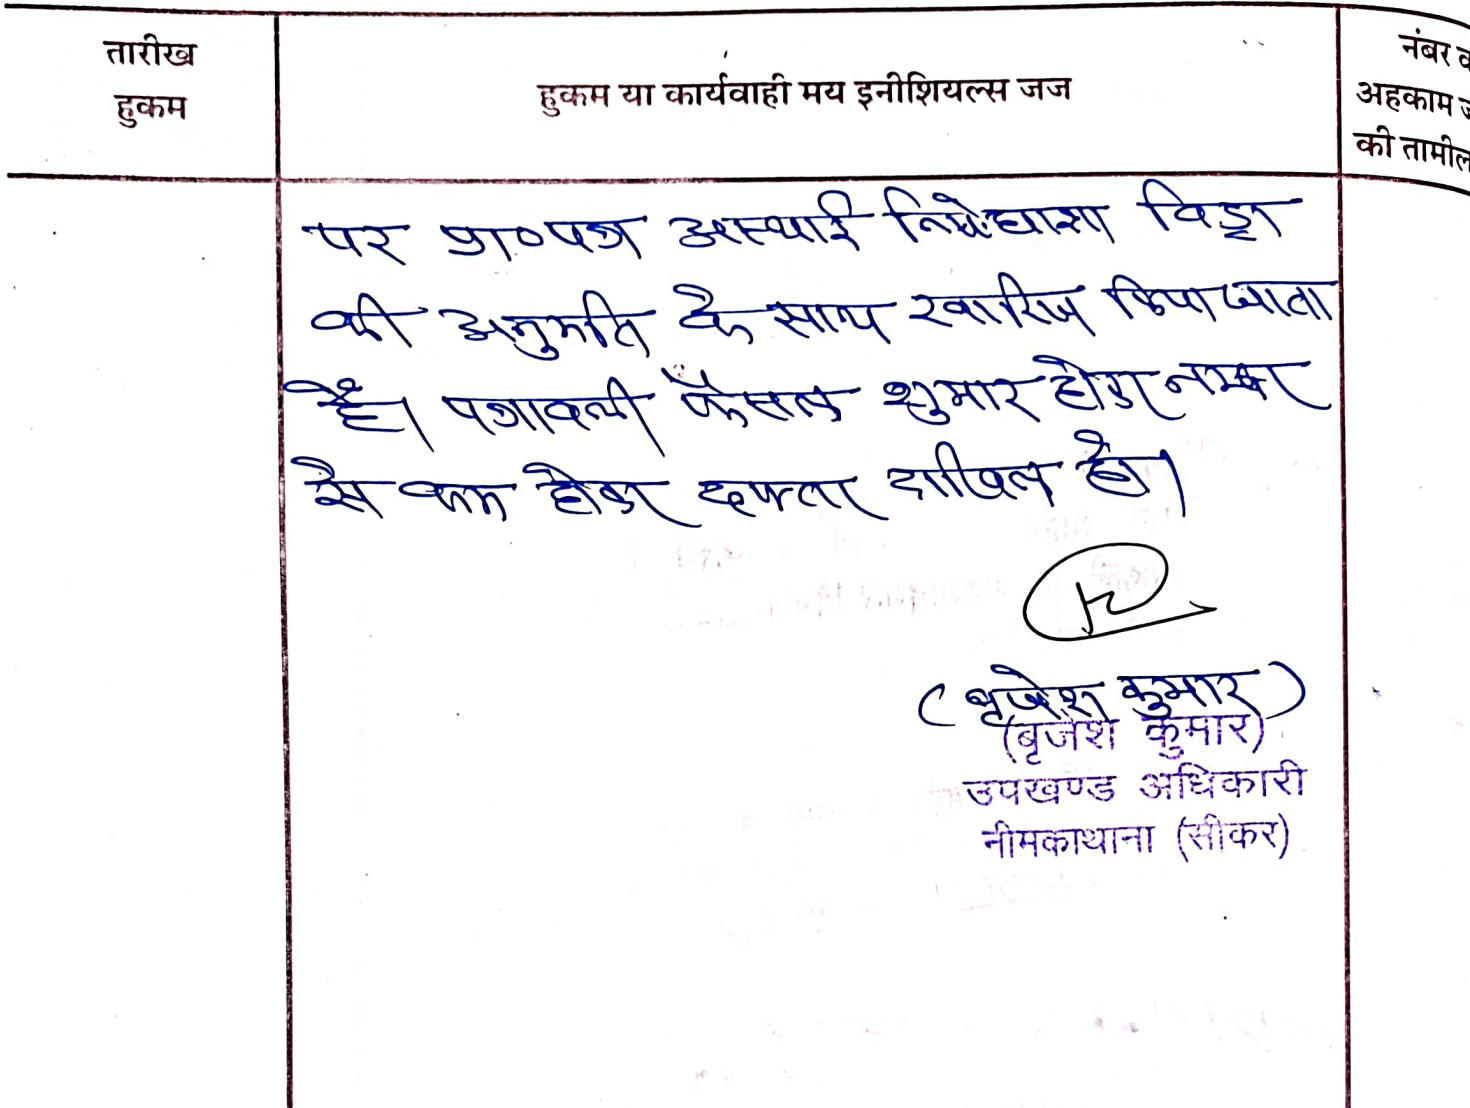 तारीख
हुकम
हुकम या कार्यवाही मय इनीशियल्स जज
नंबर व
अहकाम ज
की तामील
पर प्रा०पत्र अस्थाई निषेधाज्ञा विड्रा
की अनुमति के साथ खारिज किया जाता
है। पत्रावली फैसल शुमार होकर नम्बर
से कम होकर दफ्तर दाखिल हो।
(बृजेश कुमार)
(बृजेश कुमार)
उपखण्ड अधिकारी
नीमकाथाना (सीकर)